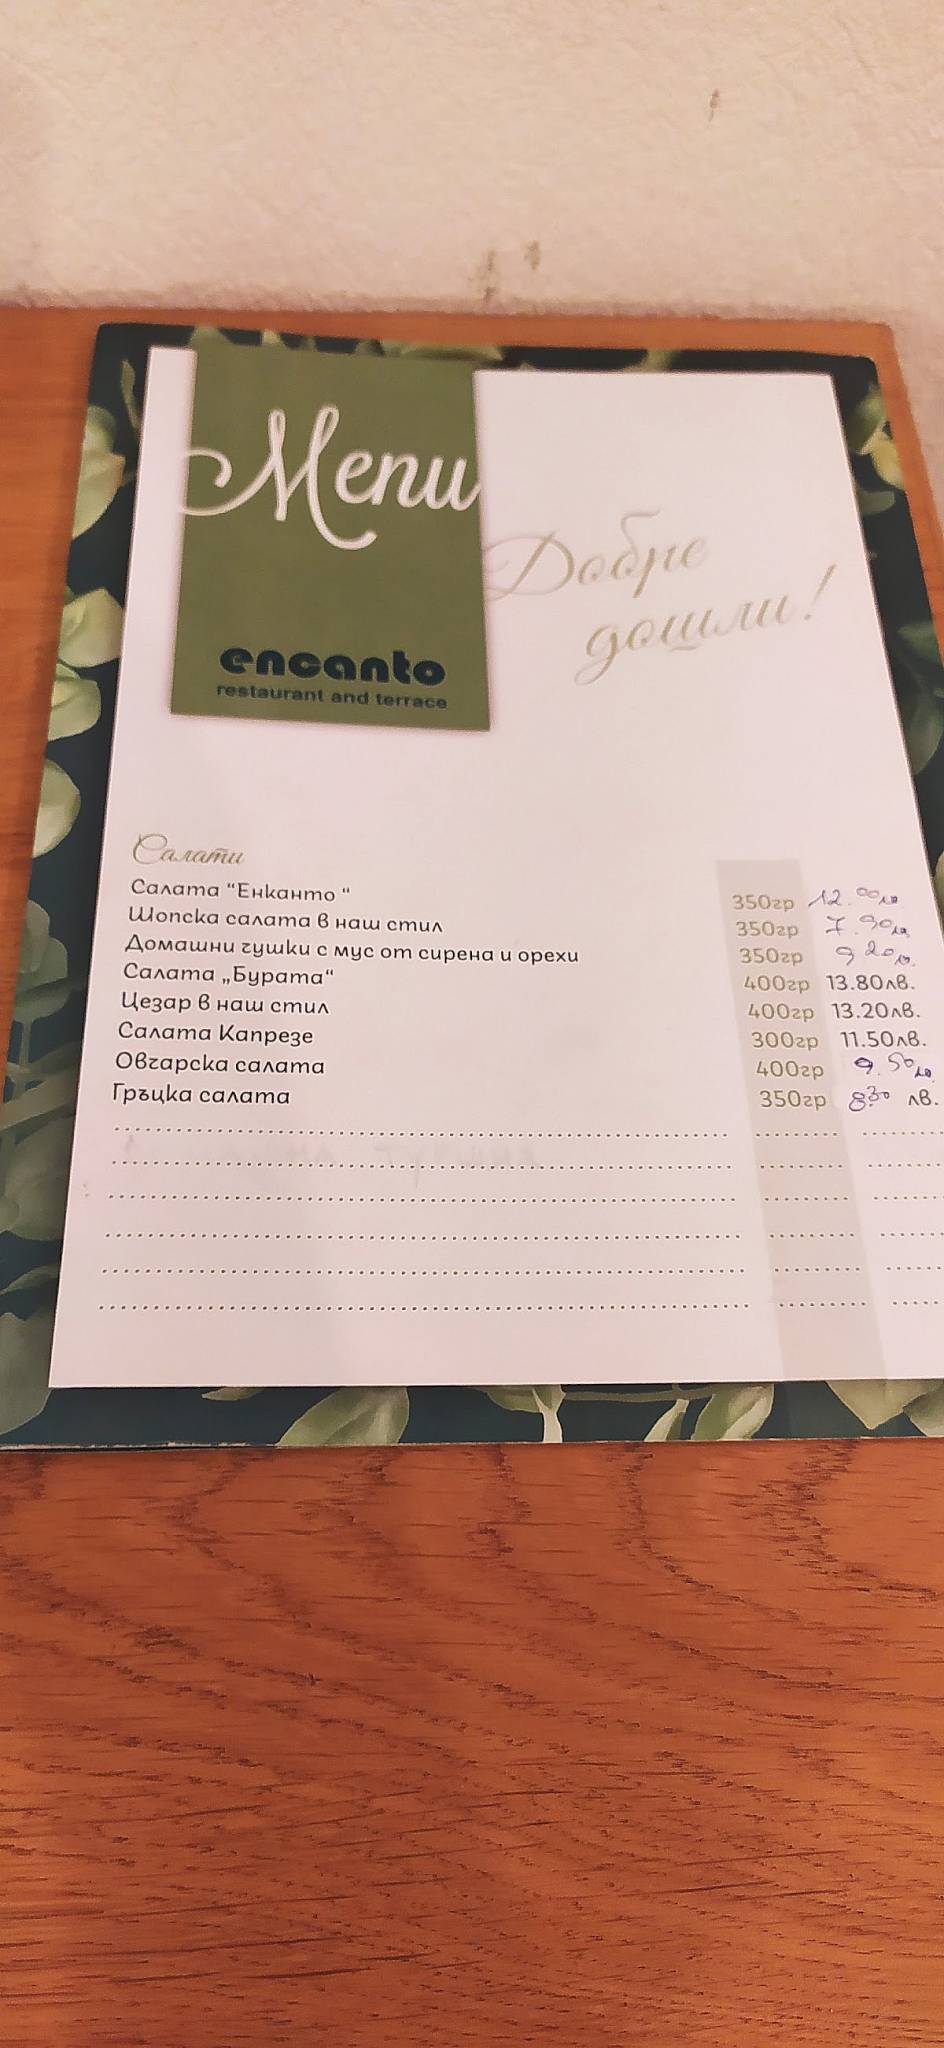 Menu
Добре
дошли!
encanto
restaurant and terrace
Салати
Салата “Енканто “ 350гр 12.00лв
Шопска салата в наш стил 350гр 7.90лв
Домашни чушки с мус от сирена и орехи 350гр 9 20лв.
Салата „Бурата“ 400гр 13.80лв.
Цезар в наш стил 400гр 13.20лв.
Салата Капрезе 300гр 11.50лв.
Овчарска салата 400гр 9.50лв
Гръцка салата 350гр 8.30 лв.